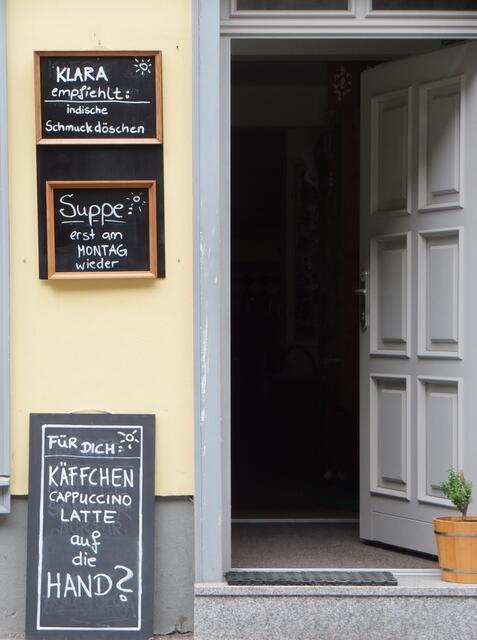 KLARA
empfiehlt:
indische
Schmuckdöschen
Suppe:
erst am
MONTAG
wieder
FÜR DICH:
KÄFFCHEN
CAPPUCCINO
LATTE
auf
die
HAND?